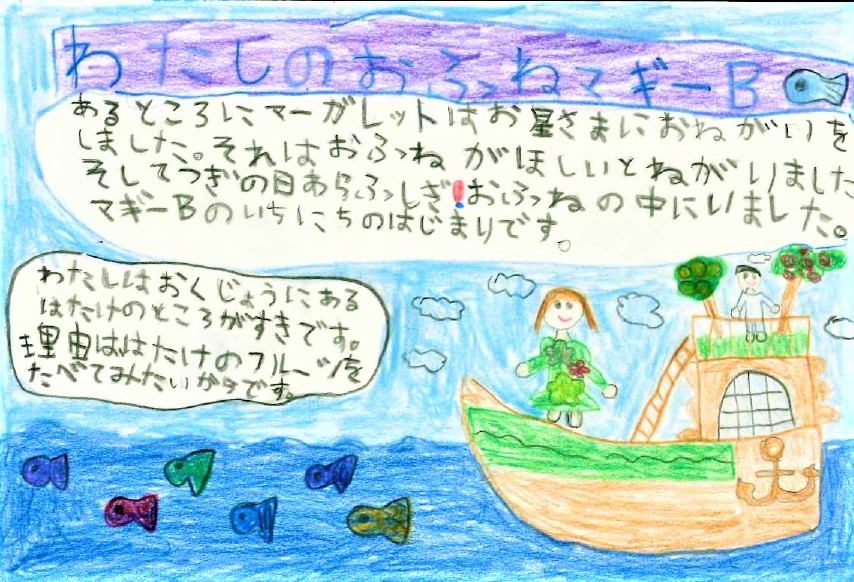 わたしのおふねマギーB
あるところにマーガレットはお星さまにおねがいを
しました。それはおふねがほしいとねがいました
そしてつぎの日あらふしぎ!おふねの中にいました。
マギーBのいちにちのはじまりです。
わたしはおくじょうにある
はたけのところがすきです。
理由ははたけのフルーツを
たべてみたいからです。